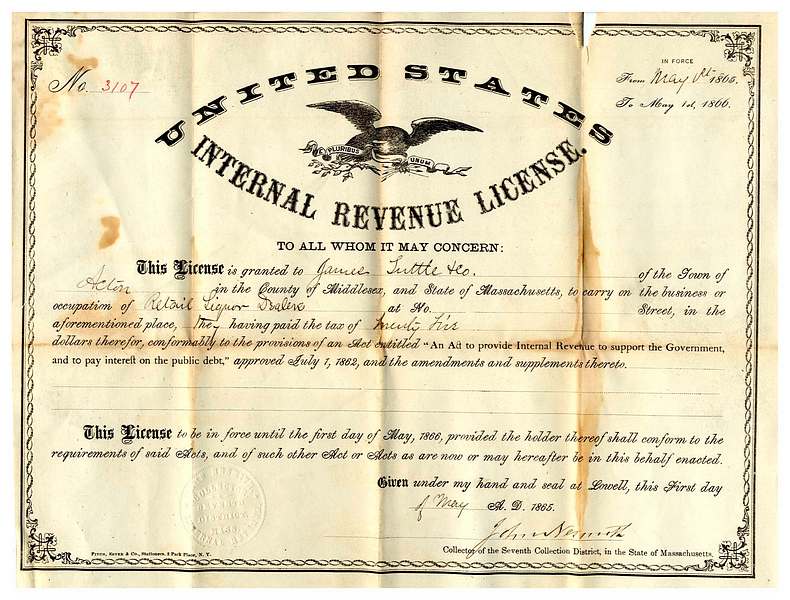 No. 3107
IN FORCE
From May 1st 1865.
To May 1st, 1866.
UNITED STATES
E PLURIBUS UNUM
INTERNAL REVENUE LICENSE.
TO ALL WHOM IT MAY CONCERN:
This License is granted to James Tuttle & Co. of the Town of
Acton in the County of Middlesex, and State of Massachusetts, to carry on the business or
occupation of Retail Liquor Dealers at No. Street, in the
aforementioned place, they having paid the tax of Twenty Five
dollars therefor, conformably to the provisions of an Act entitled "An Act to provide Internal Revenue to support the Government,
and to pay interest on the public debt," approved July 1, 1862, and the amendments and supplements thereto.
This License to be in force until the first day of May, 1866, provided the holder thereof shall conform to the
requirements of said Acts, and of such other Act or Acts as are now or may hereafter be in this behalf enacted.
Given under my hand and seal at Lowell, this First day
of May A. D. 1865.
John Nesmith
Collector of the Seventh Collection District, in the State of Massachusetts.
Stationers, 3 Park Place, N. Y.